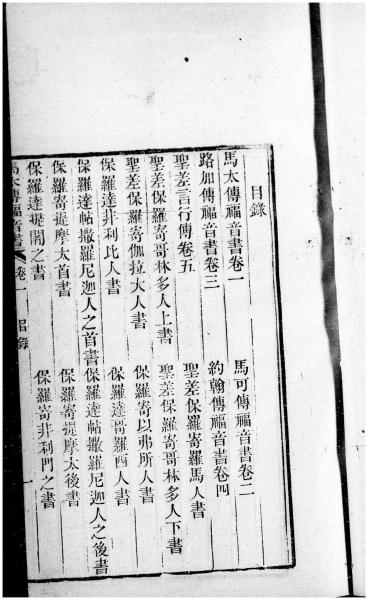 目錄
馬太傳福音書卷一　馬可傳福音書卷二
路加傳福音書卷三　約翰傳福音書卷四
聖差言行傳卷五　聖差保羅寄羅馬人書
聖差保羅寄哥林多人上書　聖差保羅寄哥林多人下書
聖差保羅寄伽拉太人書　保羅寄以弗所人書
保羅達非利比人書　保羅達哥羅西人書
保羅達帖撒羅尼迦人之首書　保羅達帖撒羅尼迦人之後書
保羅寄提摩太首書　保羅寄提摩太後書
保羅達提閙之書　保羅寄非利門之書
馬太傳福音書　卷一　目錄　一